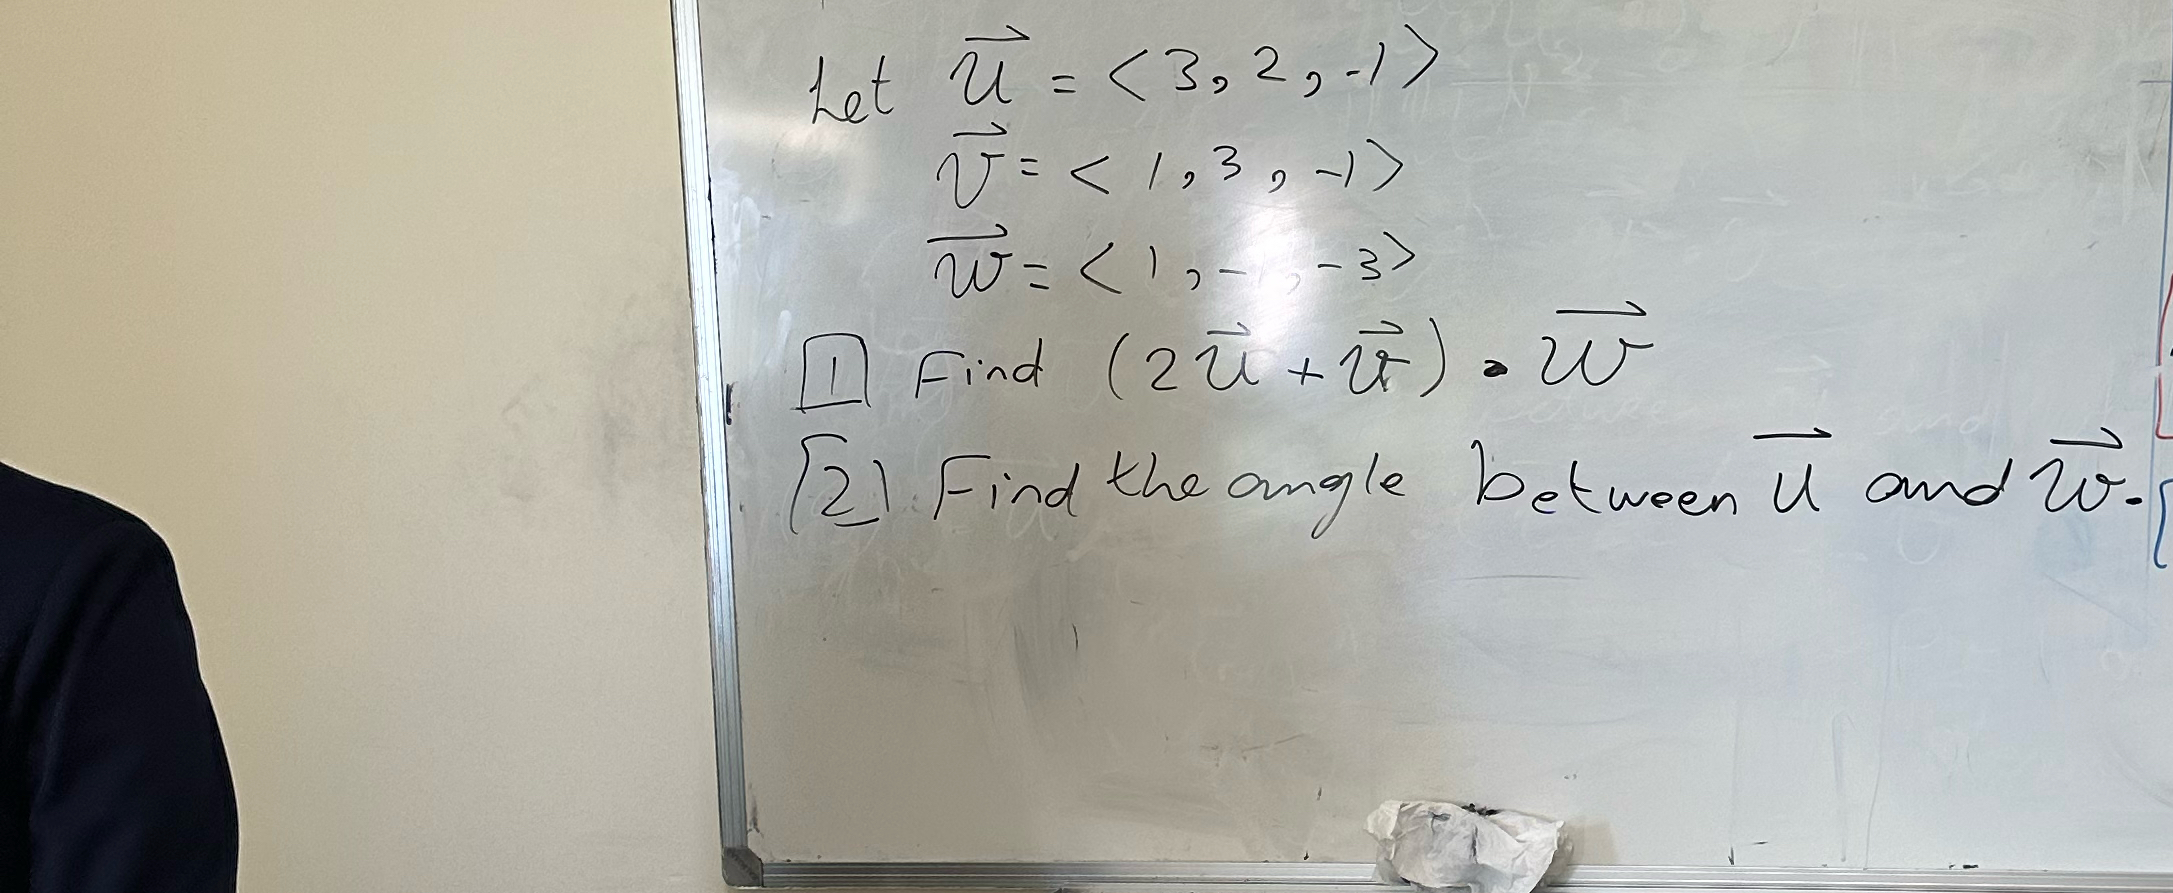 Let u⃗ = <3, 2, -1>
v⃗ = <1, 3, -1>
w⃗ = <1, -1, -3>
1 Find (2u⃗ + v⃗) • w⃗
2 Find the angle between u⃗ and w⃗.